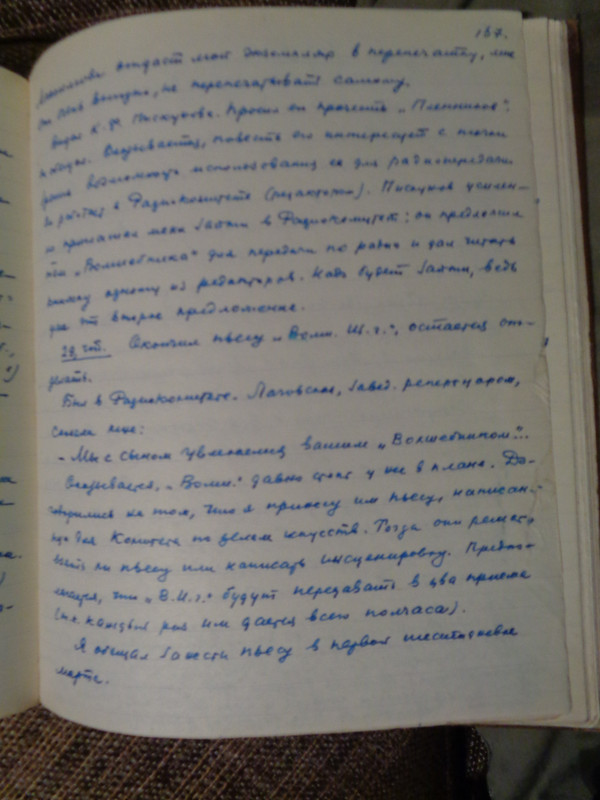 157.
отдаст мой экземпляр в перепечатку, мне
выгодно, не перепечатывать самому.
Видел К. Пискунова. Просил он прочесть „Пленников".
Оказывается, повесть его интересует с точки
зрения возможности использования ее для радиопередачи
Он работает в Радиокомитете (редактором). Пискунов усилен-
но приглашал меня зайти в Радиокомитет: он предложил
„Волшебника" для передачи по радио и дал читать
книжку одному из редакторов. Надо будет зайти, ведь
уже это второе предложение.
28, Окончил пьесу „Волш. И. г.", остается от-
делать.
Был в Радиокомитете. Лаговский, завед. репертуаром,
сказал мне:
– Мы с сыном увлекались вашим „Волшебником"...
Оказывается, „Волш." давно стоит у них в плане. До-
говорились на том, что я принесу им пьесу, написан-
ную для Комитета по делам искусств. Тогда они решат,
взять ли пьесу или написать инсценировку. Предпо-
лагается, что „В.И.г." будут передавать в два приема
(т.к. каждый раз им дается всего полчаса).
Я обещал занести пьесу в первой шестидневке
марта.